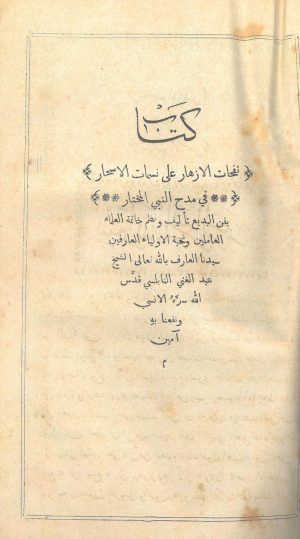 كتاب
﴿ نفحات الازهار على نسمات الاسحار ﴾
﴿ ** في مدح النبي المختار ** ﴾
بفن البديع تأليف ونظم خاتمة العلماء
العاملين ونخبة الاولياء العارفين
سيدنا العارف بالله تعالى الشيخ
عبد الغني النابلسي قدّس
الله سرّهُ الانسي
ونفعنا به
آمين
م